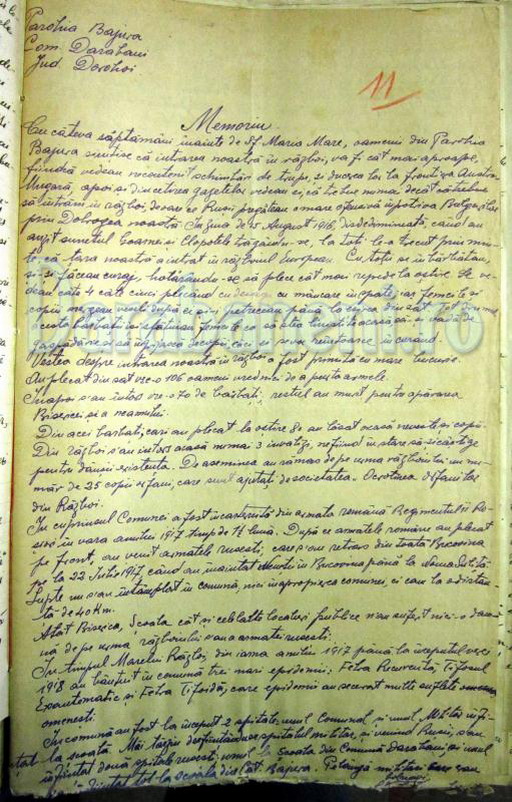 Parohia Bajura
Com. Darabani
Jud. Dorohoi
11
Memoriu
Cu câteva săptămâni înainte de Sf. Maria Mare, oamenii din Parohia
Bajura simțise că intrarea noastră în război, va fi cât mai aproape,
fiindcă vedeau necontenit schimbări de trupe, și ducerea lor la frontiera Austro-
Ungară, apoi și din cetirea gazetelor vedeau ei, că
să intrăm în război, deoarece Rușii pregăteau o mare ofensivă împotriva Bulgarilor
prin Dobrogea noastră. În ziua de 15 August 1916, disdedimineață, când au
auzit sunetul Goarnei și Clopotele trăgându-se, la toți le-a trecut prin min-
te, că țara noastră a intrat în războiul European. Cu toții se îmbărbătau,
și-și făceau curaj, hotărându-se să plece cât mai repede la oștire. Se ve-
deau câte 4 câte cinci plecând cu desagi cu mâncare în spate, iar femeile și
copiii mergeau
bărbații își sfătuiau femeile ca să
gospodărească în curând.
Vestea despre intrarea noastră în război a fost primită cu mare bucurie.
Au plecat din sat vre-o 106 oameni vrednici de a purta armele.
Înapoi s'au întors vre-o 70 de bărbați, restul au murit pentru apărarea
Bisericei și a neamului.
Din acei barbați, cari au plecat la oștire 80 au lăsat acasă neveste și copii.
Din război s'au întors acasă numai 3 invalizi, nefiind în stare să-și câștige
pentru dânșii existența. De asemenea au rămas de pe urma războiului un nu-
măr de 25 copii orfani, care sunt ajutați de societatea "Ocrotirea Orfanilor
din Război.
În cuprinsul Comunei a fost încartiruită din armata română Regimentul 11 Ro-
șiori în vara anului 1917 timp de 1½ lună. După ce armatele române au plecat
pe front, au venit armatele rusești, care s'au retras din toată Bucovina
pe la 22 Iulie 1917, când au înaintat Nemții în Bucovina până la
Lupte nu s'au întâmplat în comună, nici în apropierea comunei, ci cam la o distan-
ță de 40 Km.
Atât Biserica, Școala cât și celelalte localuri publice n'au suferit nici-o dau-
nă de pe urma războiului s'au a armatei rusești.
În timpul Marelui Război, din iarna anului 1917 până la începutul verei
1918 au bântuit în comună trei mari epidemii: Febra Recurentă, Tifosul
Exantematic și Febra Tifoidă, care epidemii au secerat multe suflete
omenești.
În comună au fost la început 2 spitale, unul Comunal și unul Militar înfi-
țat la școală. Mai târziu desființându-se spitalul militar, și venind Rușii, s'au
înființat două spitale rusești: unul la Școala din Comuna Darabani, și unul
tot la școala din Căt. Bajura. Pe lângă militari